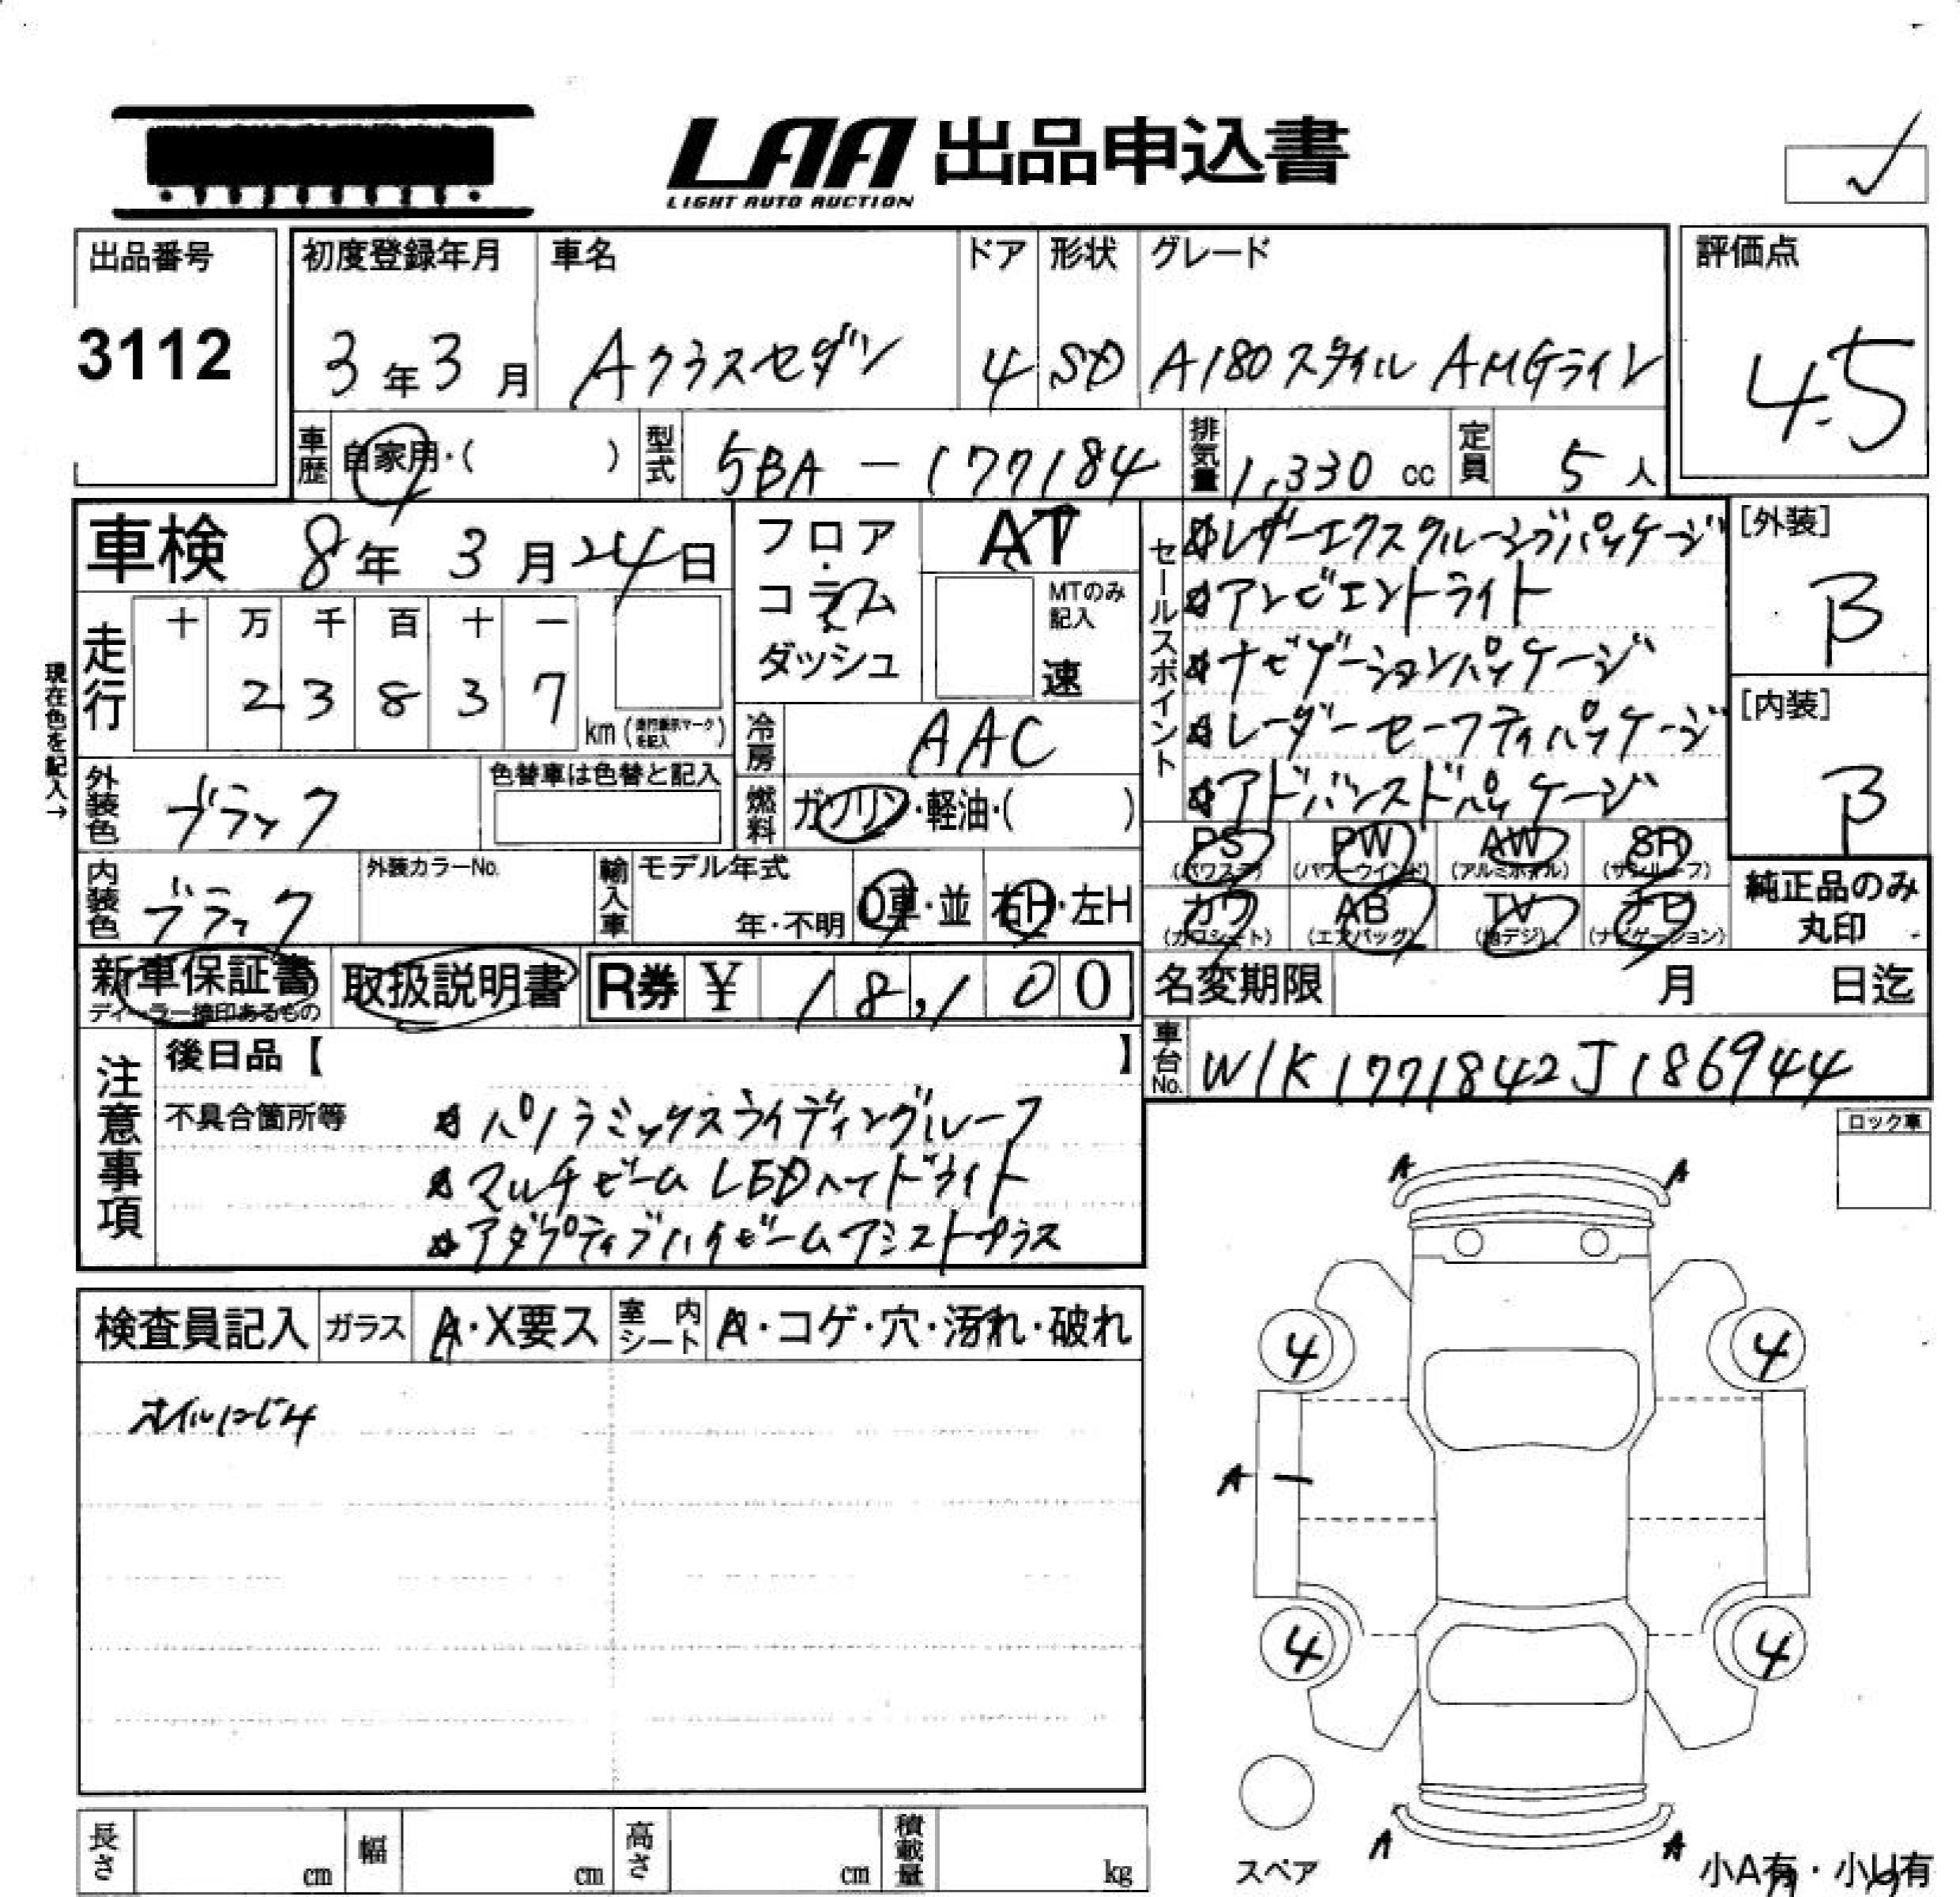 LAA 出品申込書
LIGHT AUTO AUCTION
出品番号
3112
初度登録年月
3年3月
車名
Aクラスセダン
ドア
4
形状
SD
グレード
A180スタイル AMGライン
評価点
4.5
車歴
自家用・( )
型式
5BA-177184
排気量
1,330 cc
定員
5人
車検 8年 3月 24日
フロア・コラム・ダッシュ
AT
MTのみ記入
速
セールスポイント
☆レザーエクスクルーシブパッケージ
☆アンビエントライト
☆ナビゲーションパッケージ
☆レーダーセーフティパッケージ
☆アドバンスドパッケージ
[外装]
B
[内装]
B
現在色を記入→
走行
十 万 千 百 十 一
2 3 8 3 7
km(走行表示マークを記入)
冷房
AAC
外装色
ブラック
色替車は色替と記入
燃料
ガソリン・軽油・( )
内装色
ブラック
外装カラーNo.
輸入車
モデル年式
年・不明
D車・並
右H・左H
PS (パワステ)
PW (パワーウインド)
AW (アルミホイル)
SR (サンルーフ)
カワ (カワシート)
AB (エアバッグ)
TV (地デジ)
ナビ (ナビゲーション)
純正品のみ
丸印
新車保証書
ディーラー捺印あるもの
取扱説明書
R券 ¥ 18,100
名変期限 月 日迄
車台No.
W1K1771842J186944
注意事項
後日品【 】
不具合箇所等
☆パノラミックスライディングルーフ
☆マルチビームLEDヘッドライト
☆アダプティブハイビームアシストプラス
ロック車
検査員記入
ガラス
A・X要ス
室内シート
A・コゲ・穴・汚れ・破れ
オイルにじみ
A A
4 4
A
4 4
A A
スペア
小A有・小U有
長さ cm
幅 cm
高さ cm
積載量 kg